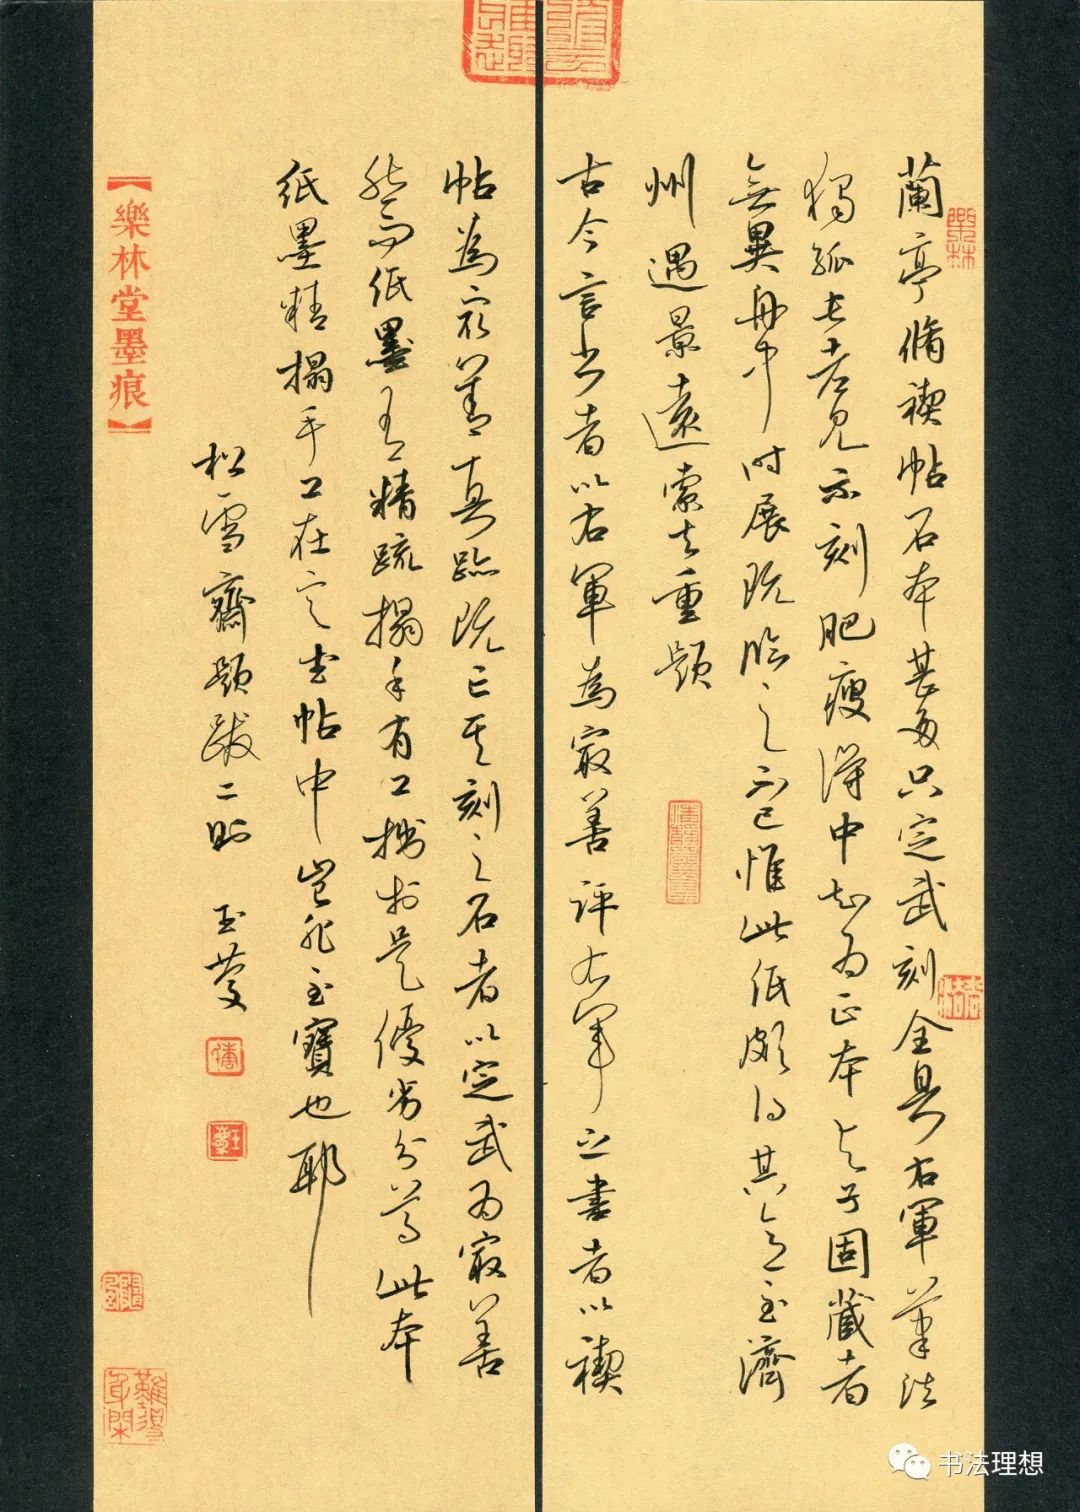 蘭亭脩禊帖石本甚多只定武刻全具右軍筆法
獨孤長老見示刻肥瘦得中知為正本與子固藏者
無異舟中時展玩臨之不已惟此紙頗得其意至濟
州遇景遠索去重題
古今言書者以右軍為冣善評右軍之書者以禊
帖為冣善真跡既亡其刻之石者以定武為冣善
然而紙墨有精疏搨手有工拙於是優劣分焉此本
紙墨精搨手工在定武帖中豈非至寶也耶
松雪齋題跋二則 玉慶
【樂林堂墨痕】
难得
书法理想